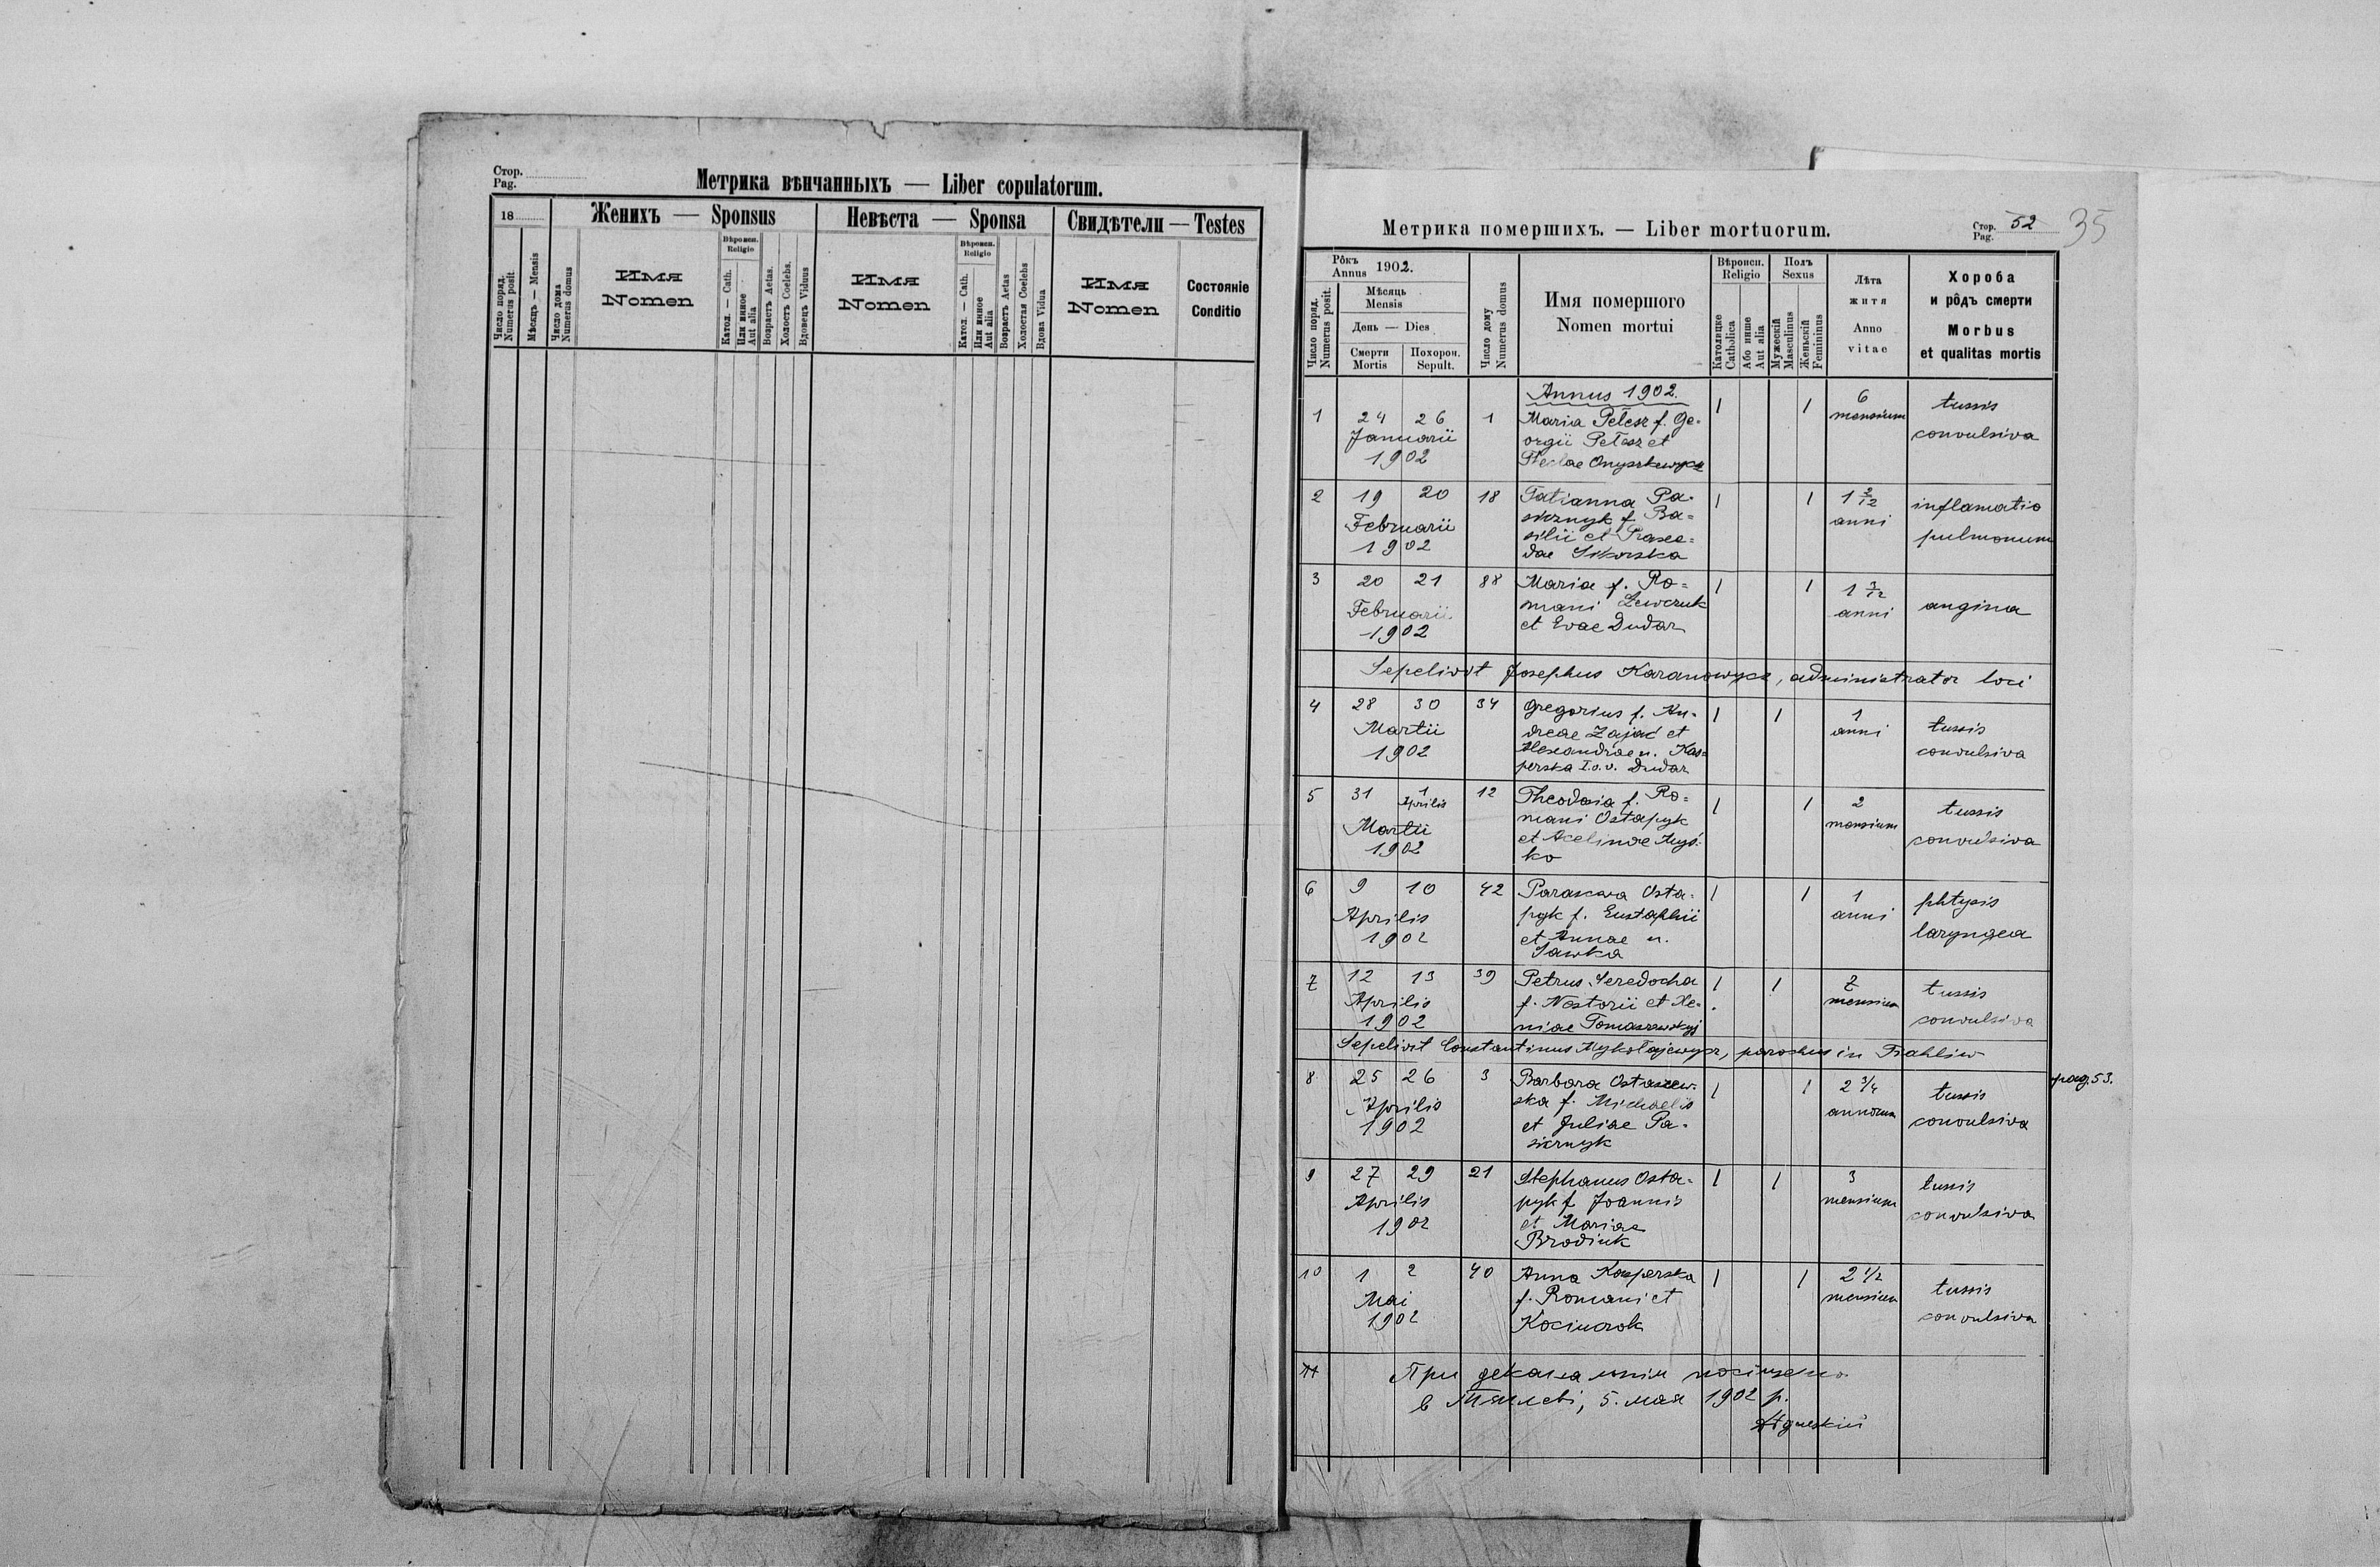 Стор.
Pag.
Метрика вѣнчанныхъ — Liber copulatorum.
18
Женихъ — Sponsus
Невѣста — Sponsa
Свидѣтели — Testes
Число поряд.
Numerus posit.
Мѣсяцъ — Mensis
Число дома
Numerus domus
Имя
Nomen
Вѣроисп.
Religio
Катол. — Cath.
Или иное
Aut alia
Возрастъ Aetas.
Холостъ Coelebs.
Вдовецъ Viduus
Имя
Nomen
Вѣроисп.
Religio
Катол. — Cath.
Или иное
Aut alia
Возрастъ Aetas
Холостая Coelebs
Вдова Vidua
Имя
Nomen
Состояніе
Conditio
Метрика помершихъ. — Liber mortuorum.
Стор.
Pag. 52
35
Рôкъ
Annus 1902.
Число поряд.
Numerus posit.
Мѣсяць
Mensis
День — Dies
Смерти
Mortis
Похорон.
Sepult.
Число дому
Numerus domus
Имя помершого
Nomen mortui
Вѣроисп.
Religio
Католицке
Catholica
Або инше
Aut alia
Полъ
Sexus
Мужескій
Masculinus
Женьскій
Femininus
Лѣта
житя
Anno
vitae
Хороба
и рôдъ смерти
Morbus
et qualitas mortis
Annus 1902.
1 24 26 1 Maria Pełesz f. Ge- 1 1 6 tussis
Januarii orgii Pełesz et mensium convulsiva
1902 Theclae Onyszkewycz
2 19 20 18 Tatianna Pa- 1 1 1 2/12 inflamatio
Februarii sicznyk f. Ba- anni pulmonum
1902 silii et Parasce-
dae Sikorska
3 20 21 88 Maria f. Ro- 1 1 1 7/12 angina
Februarii mani Lewczuk anni
1902 et Evae Dudar
Sepelivit Josephus Karanowycz, administrator loci
4 28 30 34 Gregorius f. An- 1 1 1 tussis
Martii dreae Zając et anni convulsiva
1902 Alexandrae n. Kas-
perska I.o.v. Dudar
5 31 1 Aprilis 12 Theodosia f. Ro- 1 1 2 tussis
Martii mani Ostapyk mensium convulsiva
1902 et Acelinae
ko
6 9 10 42 Parascewa Osta- 1 1 1 phtysis
Aprilis pyk f. Eustaphii anni laryngea
1902 et Annae n.
Sawka
7 12 13 39 Petrus Seredocha 1 1 7 tussis
Aprilis f. Nestorii et Xe- mensium convulsiva
1902 niae Tomaszewskyj
Sepelivit Constantinus Mykołajewycz, parochus in
8 25 26 3 Barbara Ostaszew- 1 1 2 3/4 tussis pag. 53.
Aprilis ska f. Michaelis annorum convulsiva
1902 et Juliae Pa-
sicznyk
9 27 29 21 Stephanus Osta- 1 1 3 tussis
Aprilis pyk f. Joannis mensium convulsiva
1902 et Mariae
Brodiuk
10 1 2 40 Anna Kasperska 1 1 2 1/2 tussis
Mai f. Romani et mensium convulsiva
1902
11 При деканальнім
в 5. мая 1902 р.